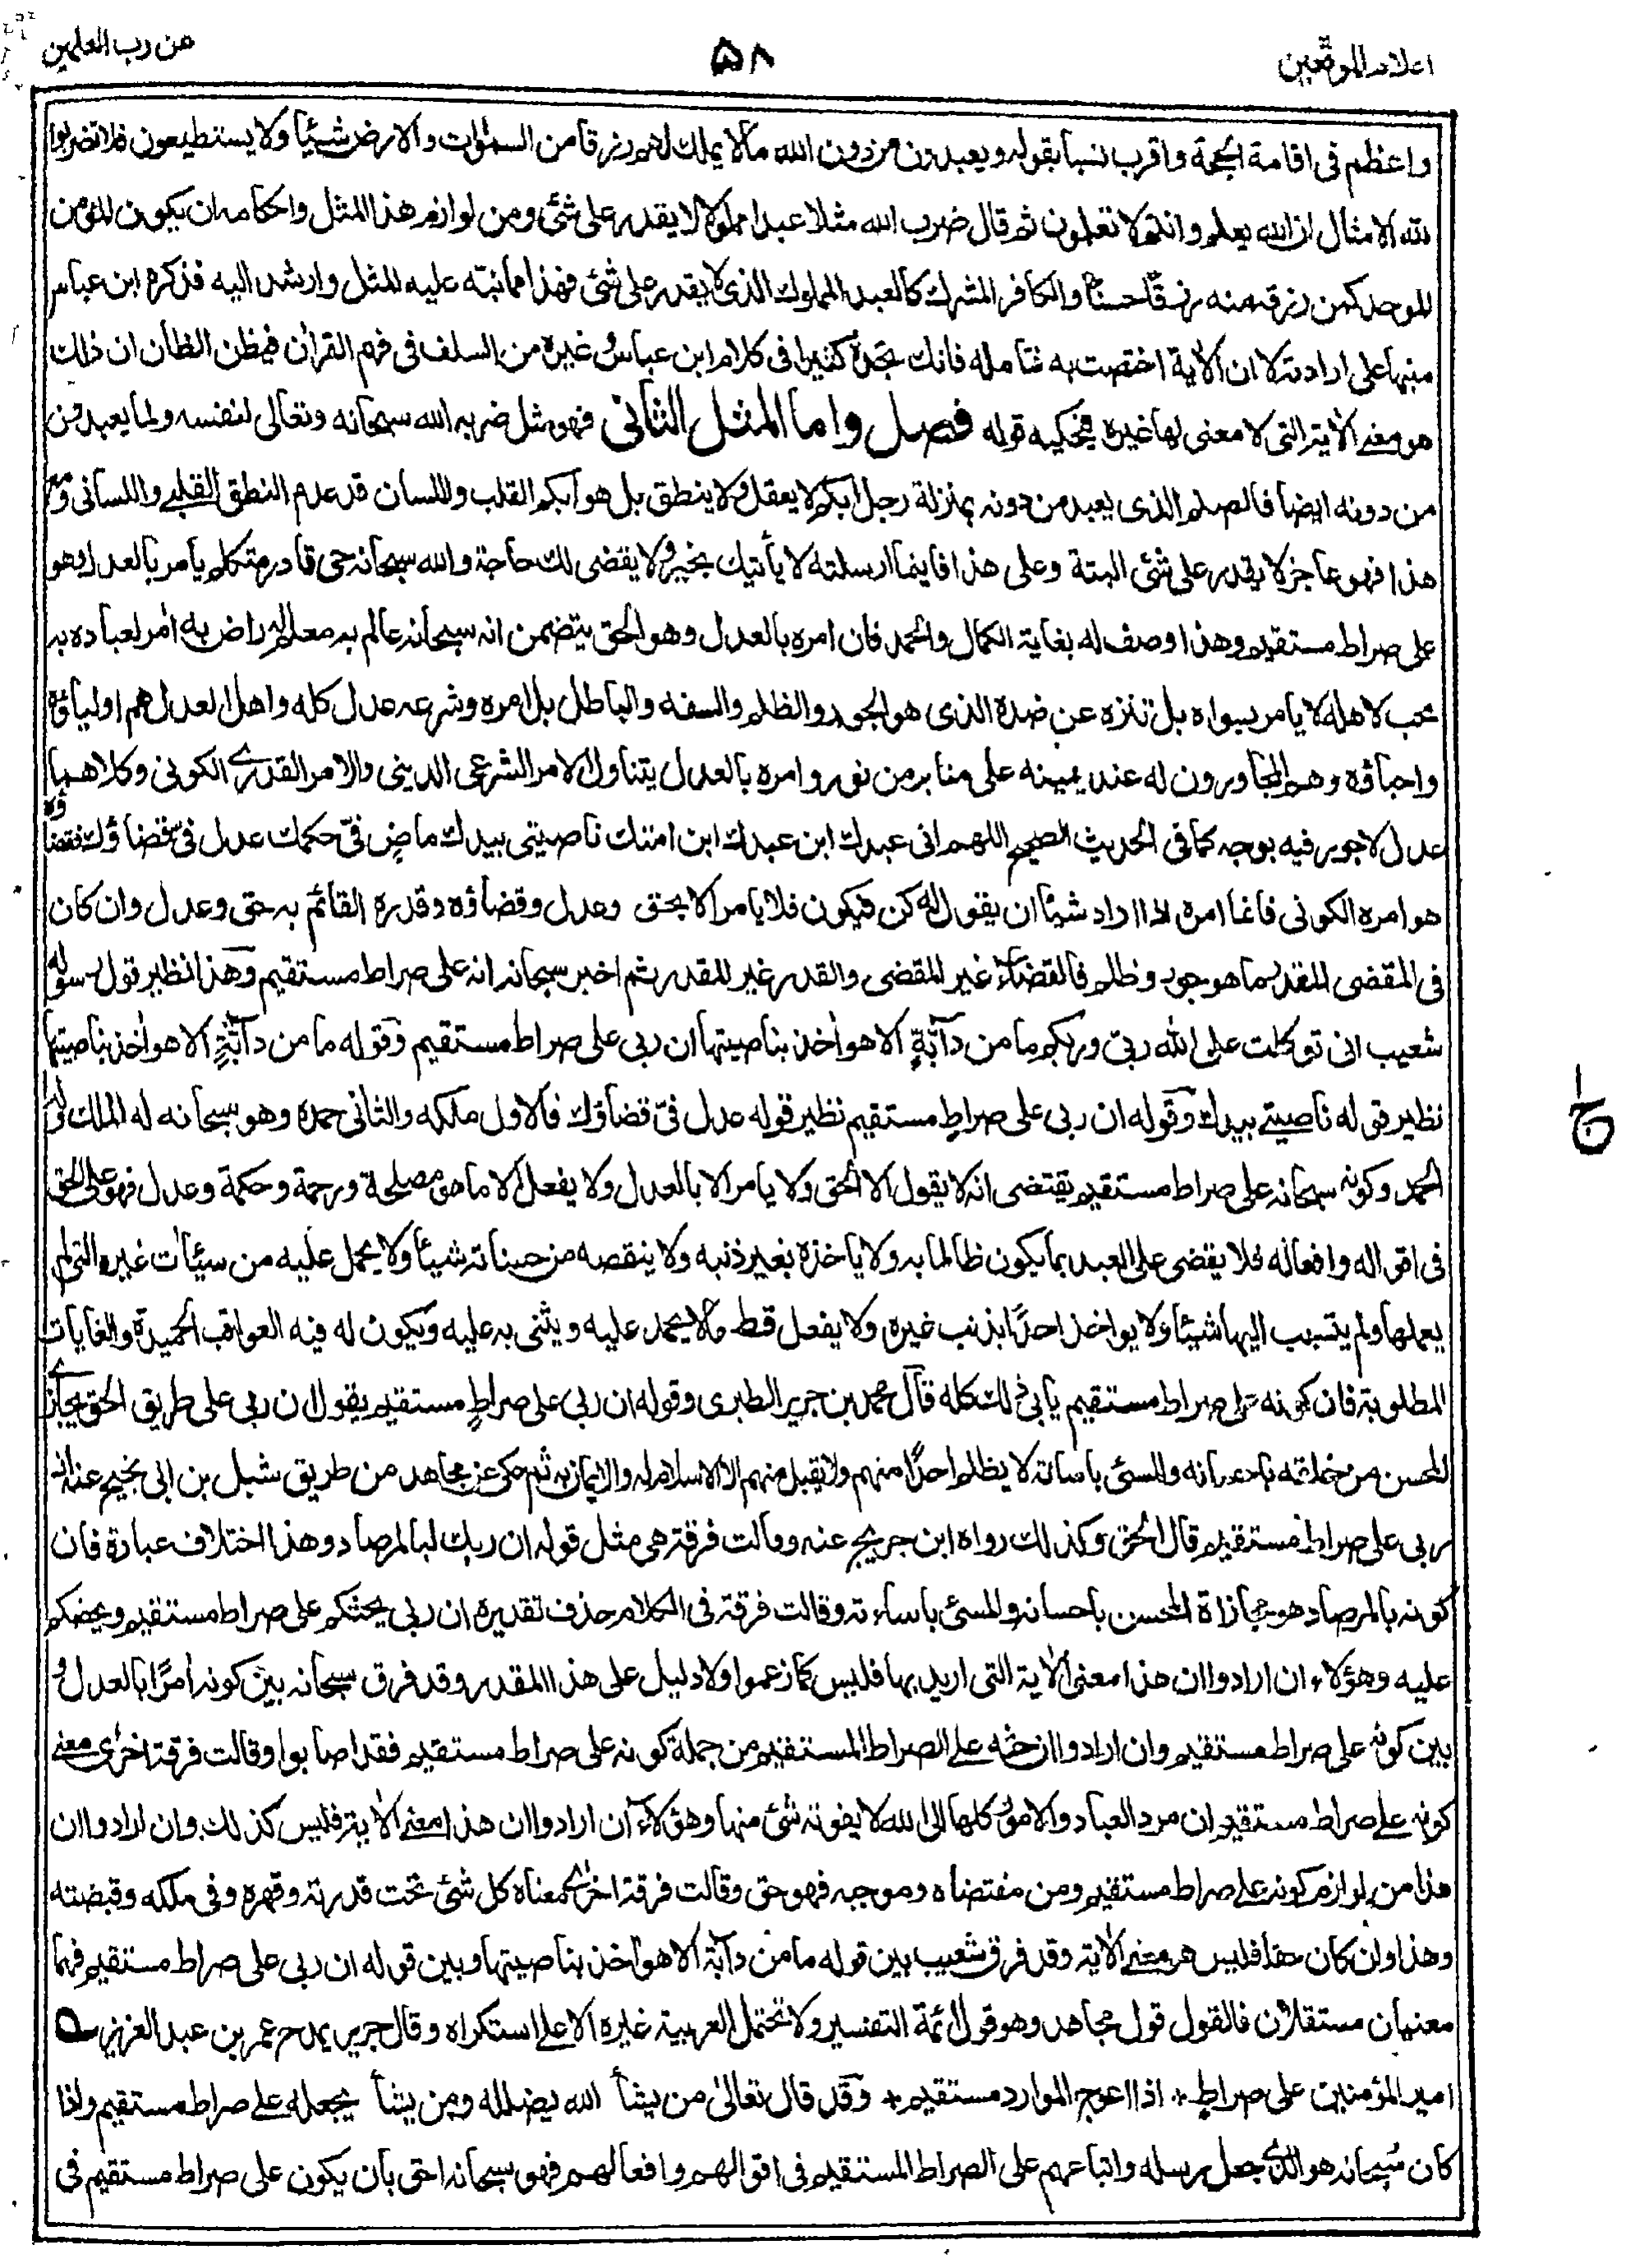 اعلام الموقعين
٥٨
عن رب العلمين
واعظم فى اقامة الحجة واقرب نسبا بقوله ويعبدون من دون الله مالا يملك لهم رزقا من السموات والارض شيئا ولا يستطيعون فلا تضربوا
لله الامثال ان الله يعلم وانتم لا تعلمون ثم قال ضرب الله مثلا عبدا مملوكا لا يقدر على شئ ومن لوازم هذا المثل واحكامه ان يكون المؤمن
الموحد كمن رزقه منه رزقًا حسنًا والكافر المشرك كالعبد المملوك الذى لا يقدر على شئ فهذا مما نبّه عليه المثل وارشد اليه فذكره ابن عباس
منبها على ارادته لا ان الآية اختصت به فتأمله فانك تجده كثيرا فى كلام ابن عباس وغيره من السلف فى فهم القران فيظن الظان ان ذلك
هو معنى الآية التى لا معنى لها غيره فيحكيه قوله فصل واما المثل الثانى فهو مثل ضربه الله سبحانه وتعالى لنفسه ولما يعبدون
من دونه ايضا فالصنم الذى يعبد من دونه بمنزلة رجل ابكم لا يعقل ولا ينطق بل هو ابكم القلب واللسان قد عدم النطق القلبى واللسانى ومع
هذا فهو عاجز لا يقدر على شئ البتة وعلى هذا فاينما ارسلته لا يأتيك بخير ولا يقضى لك حاجة والله سبحانه حى قادر متكلم يأمر بالعدل وهو
على صراط مستقيم وهذا وصف له بغاية الكمال والحمد فان امره بالعدل وهو الحق يتضمن انه سبحانه عالم به معلم له راض به آمر لعباده به
محب لاهله لا يامر بسواه بل تنزه عن ضده الذى هو الجور والظلم والسفه والباطل بل امره وشرعه عدل كله واهل العدل هم اولياؤه
واحباؤه وهم المجاورون له عند يمينه على منابر من نور وامره بالعدل يتناول الامر الشرعى الدينى والامر القدرى الكونى وكلاهما
عدل لا جور فيه بوجه كما فى الحديث الصحيح اللهم انى عبدك ابن عبدك ابن امتك ناصيتى بيدك ماضٍ فىّ حكمك عدل فىّ قضاؤك فقضاؤه
هو امره الكونى فانما امره اذا اراد شيئا ان يقول له كن فيكون فلا يامر الا بحق وعدل وقضاؤه وقدره القائم به حق وعدل وان كان
فى المقضى المقدر ما هو جور وظلم فالقضاء غير المقضى والقدر غير المقدر ثم اخبر سبحانه انه على صراط مستقيم وهذا نظير قول رسوله
شعيب انى توكلت على الله ربى وربكم ما من دآبّةٍ الا هو آخذ بناصيتها ان ربى على صراط مستقيم وقوله ما من دآبّةٍ الا هو آخذ بناصيتها
نظير قوله ناصيتى بيدك وقوله ان ربى على صراطٍ مستقيم نظير قوله عدل فىّ قضاؤك فالاول ملكه والثانى حمده وهو سبحانه له الملك وله
الحمد وكونه سبحانه على صراط مستقيم يقتضى انه لا يقول الا الحق ولا يامر الا بالعدل ولا يفعل الا ما هو مصلحة ورحمة وحكمة وعدل فهو على الحق
فى اقواله وافعاله فلا يقضى على العبد بما يكون ظالما به ولا ياخذه بغير ذنبه ولا ينقصه من حسناته شيئا ولا يحمل عليه من سيئات غيره التى لم
يعملها ولم يتسبب اليها شيئا ولا يواخذ احدًا بذنب غيره ولا يفعل قط مالا يحمد عليه ويثنى به عليه ويكون له فيه العواقب الحميدة والغايات
المطلوبة فان كونه على صراط مستقيم يابى ذلك كله قال محمد بن جرير الطبرى وقوله ان ربى على صراطٍ مستقيم يقول ان ربى على طريق الحق يجازى
المحسن من خلقه باحسانه والمسئ باساته لا يظلم احدًا منهم ولا يقبل منهم الا الاسلام له والايمان به ثم حكى عن مجاهد من طريق شبل بن ابى نجيح عنه ان
ربى على صراط مستقيم قال الحق وكذلك رواه ابن جريج عنه وقالت فرقة هى مثل قوله ان ربك لبالمرصاد وهذا اختلاف عبارة فان
كونه بالمرصاد هو مجازاة المحسن باحسانه والمسئ باساءته وقالت فرقة فى الكلام حذف تقديره ان ربى يحثكم على صراط مستقيم ويحضكم
عليه وهؤلاء ان ارادوا ان هذا معنى الآية التى اريد بها فليس كما زعموا ولا دليل على هذا المقدر وقد فرق سبحانه بين كونه آمرًا بالعدل و
بين كونه على صراط مستقيم وان ارادوا ان حثه على الصراط المستقيم من جملة كونه على صراط مستقيم فقد اصابوا وقالت فرقة اخرى معنى
كونه على صراط مستقيم ان مرد العباد والامور كلها الى الله لا يفوته شئ منها وهؤلاء ان ارادوا ان هذا معنى الآية فليس كذلك وان ارادوا ان
هذا من لوازم كونه على صراط مستقيم ومن مقتضاه وموجبه فهو حق وقالت فرقة اخرى معناه كل شئ تحت قدرته وقهره وفى ملكه وقبضته
وهذا وان كان حقا فليس هو معنى الآية وقد فرق شعيب بين قوله ما من دآبّة الا هو آخذ بناصيتها وبين قوله ان ربى على صراط مستقيم فهما
معنيان مستقلان فالقول قول مجاهد وهو قول ائمة التفسير ولا تحتمل العربية غيره الا على استكراه وقال جرير يمدح عمر بن عبد العزيز
امير المؤمنين على صراطٍ * اذا اعوج الموارد مستقيم * وقد قال تعالى من يشأ الله يضلله ومن يشأ يجعله على صراط مستقيم واذا
كان سبحانه هو الذى جعل رسله واتباعهم على الصراط المستقيم فى اقوالهم وافعالهم فهو سبحانه احق بان يكون على صراط مستقيم فى
ج ١